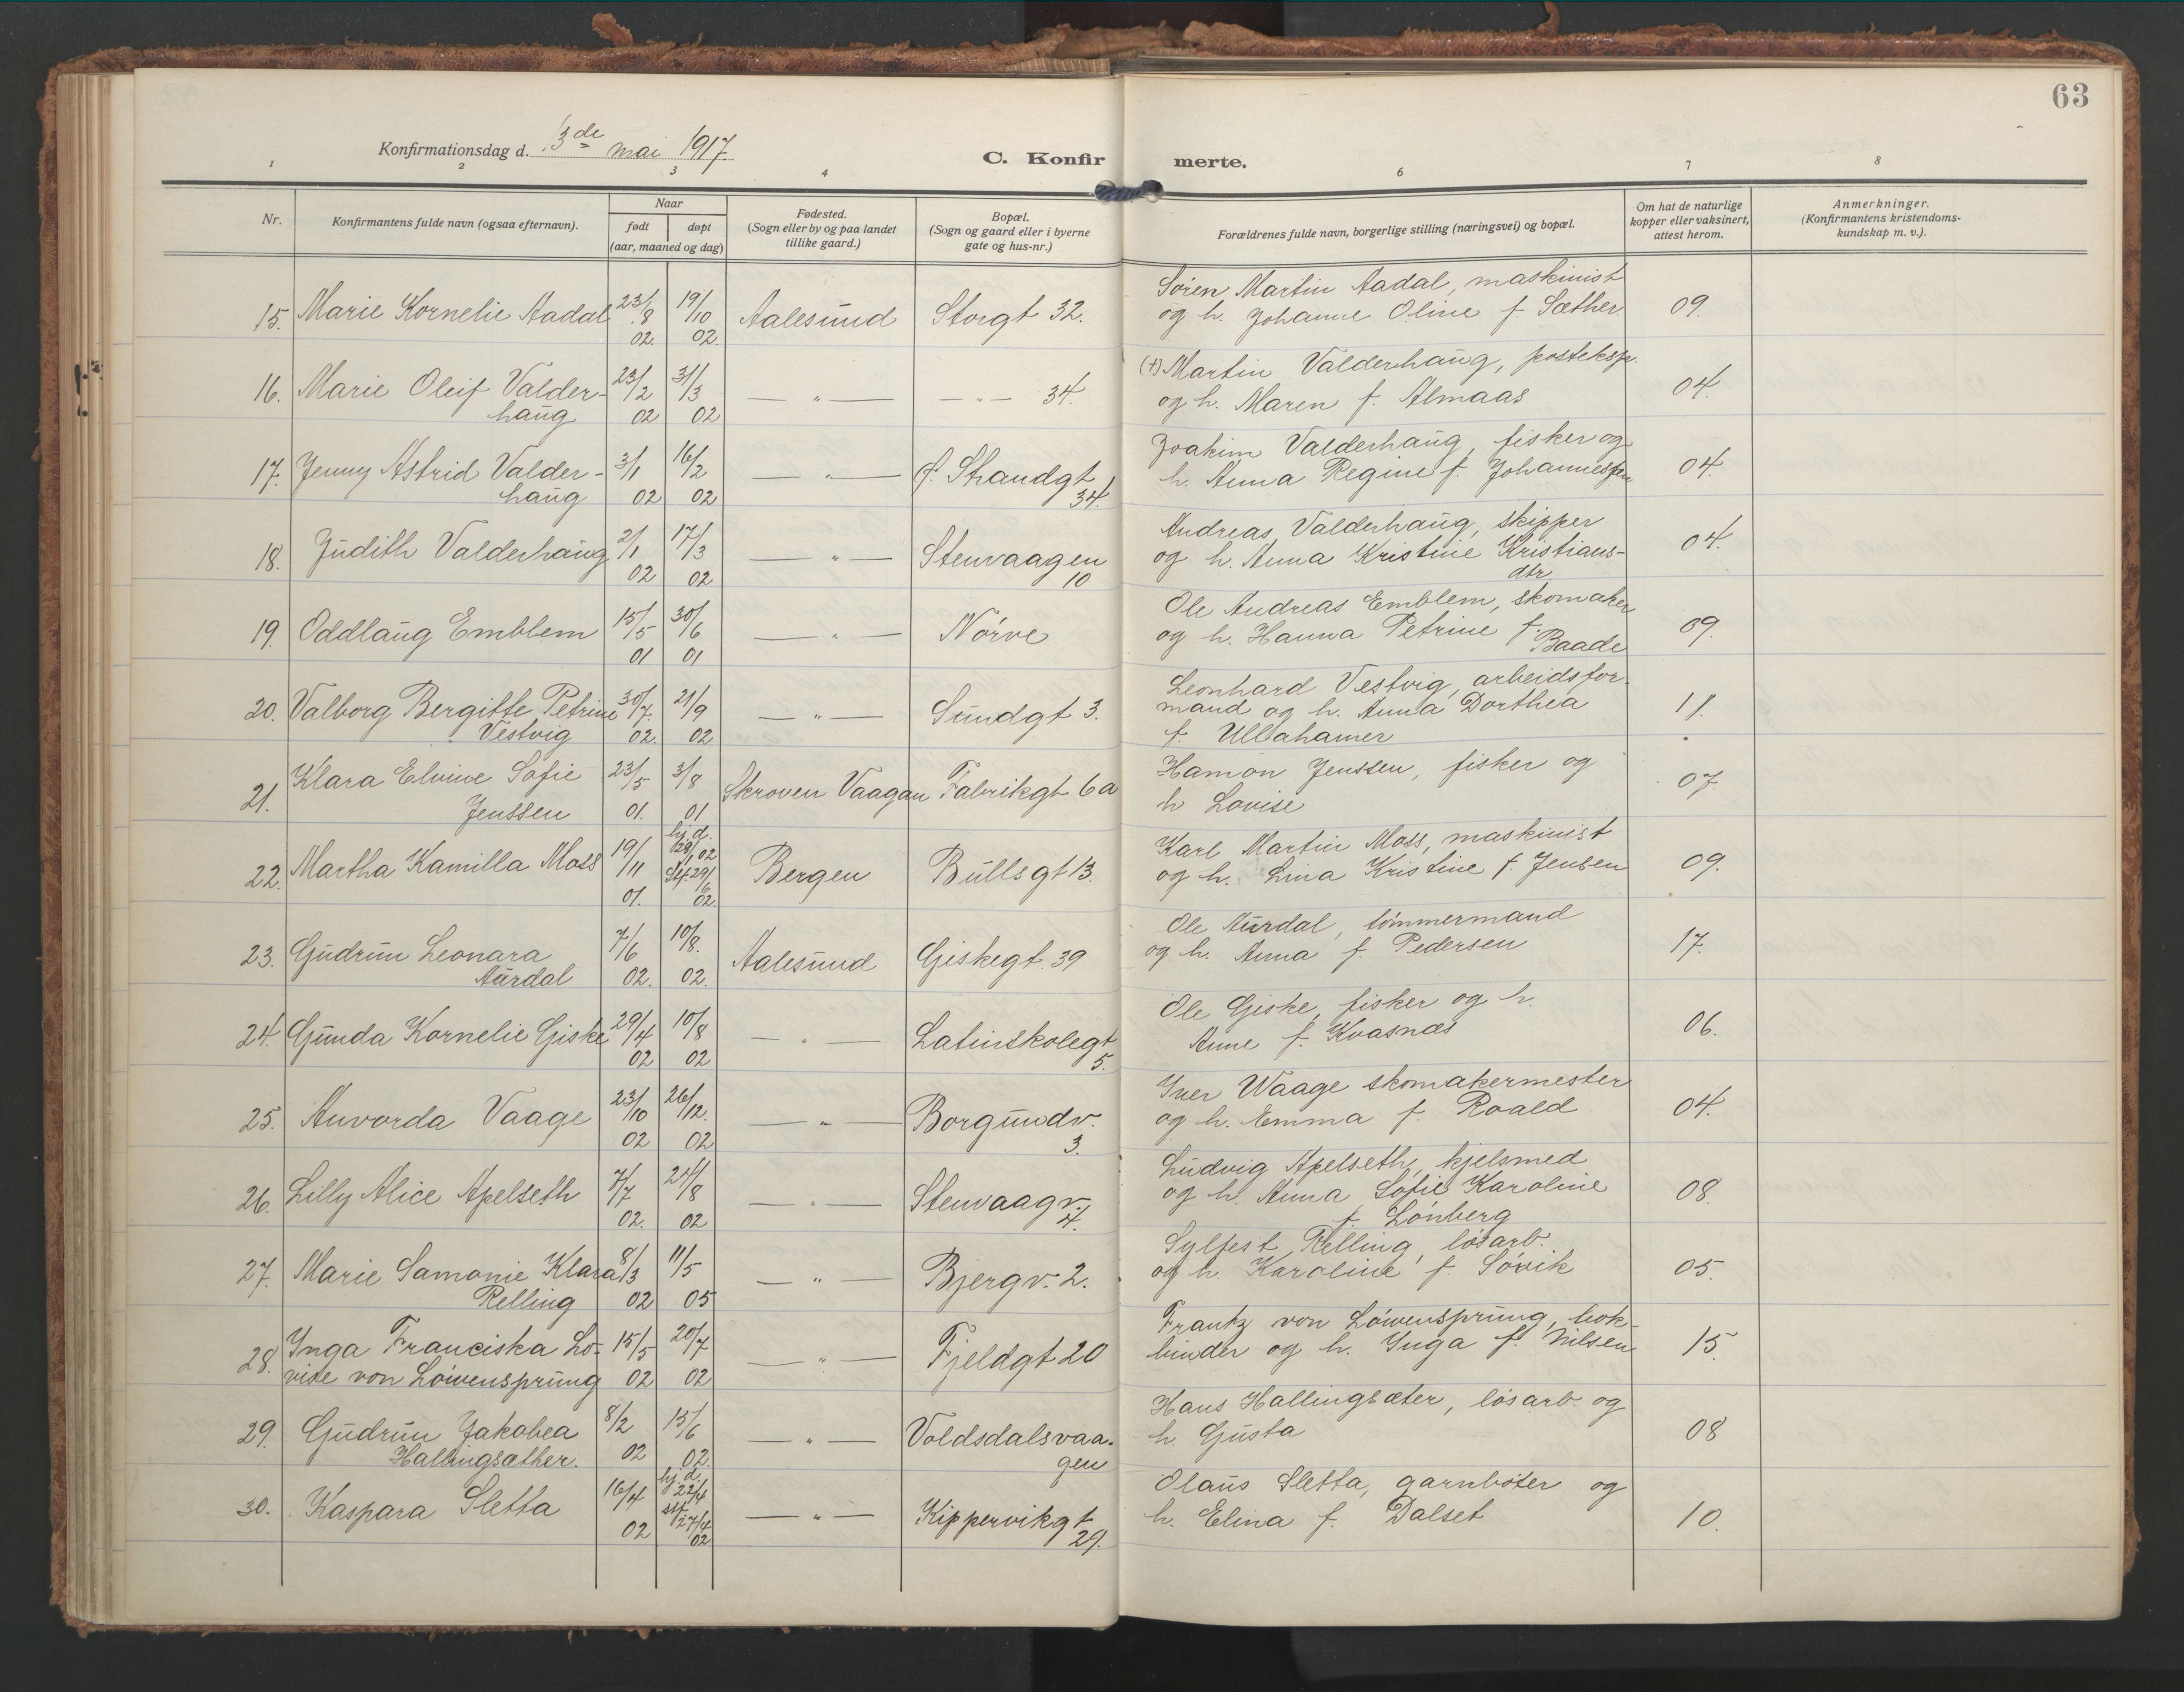 63
Konfirmationsdag d. 13de mai 1917.
C. Konfirmerte.
1 2 3 4 6 7 8
Nr.
Konfirmantens fulde navn (ogsaa efternavn).
Naar
født døpt
(aar, maaned og dag)
Fødested.
(Sogn eller by og paa landet
tillike gaard.)
Bopæl.
(Sogn og gaard eller i byerne
gate og hus-nr.)
Forældrenes fulde navn, borgerlige stilling (næringsvei) og bopæl.
Om hat de naturlige
kopper eller vaksinert,
attest herom.
Anmerkninger.
(Konfirmantens kristendoms-
kundskap m. v.).
15. Marie Kornelie Aadal 23/8 02. 19/10 02. Aalesund Storgt 32. Søren Martin Aadal, maskinist
og h. Johanne Oline f. Sæther. 09.
16. Marie Oleif Valder-
haug 23/2 02 31/3 02 — " — — " — 34. (†) Martin Valderhaug, posteksp.
og h. Maren f. Almaas 04.
17. Jenny Astrid Valder-
haug 3/1 02 16/2 02 — " — f. Strandgt
34. Joakim Valderhaug, fisker og
h. Anna Regine f. Johannessen 04.
18. Judith Valderhaug 2/1 02 17/3 02 — " — Stenvaagen
10 Andreas Valderhaug, skipper
og h. Anna Kristine Kristians-
dtr. 04.
19. Oddlaug Emblem 15/5 01 30/6 01 — " — Nørve Ole Andreas Emblem, skomaker
og h. Hanna Petrine f.
Baade 09.
20. Valborg Bergitte Petrine
Vestvig 30/7. 02. 21/9 02 — " — Sundgt 3. Leonhard Vestvig, arbeidsfor-
mand og h. Anna Dorthea
f. Ullahamer 11.
21. Klara Elvine Sofie
Jenssen 23/5 01. 3/8 01 Skroven Vaagan Fabrikgt 6a Hamon Jenssen, fisker og
h Lovise 07.
22. Martha Kamilla Moss 19/11 01. hj. d. 02 29/6 02. Bergen Bullsgt 13. Karl Martin Moss, maskinist
og h. Lina Kristine f. Jensen 09.
23. Gudrun Leonara
Aurdal 7/6 02. 10/8. 02. Aalesund Giskegt. 39 Ole Aurdal, tømmermand
og h. Anna f. Pedersen 17.
24. Gunda Kornelie Giske 29/4 02 10/8 02 — " — Latinskolegt
5. Ole Giske, fisker og h.
Anne f. Kvasnæs 06.
25. Anvorda Vaage 23/10 02 26/12. 02 — " — Borgundv.
3. Iver Waage skomakermester
og h. Emma f. Roald 04.
26. Lilly Alice Apelseth 7/7 02. 24/8 02 — " — Stenvaagv.
4. Ludvig Apelseth, kjelsmed
og h. Anna Sofie Karoline
f. Lønberg 08.
27. Marie Samonie Klara
Relling 8/3 02 11/5 05 — " — Bjergv. 2. Sylfest Relling, løsarb.
og h. Karoline f. Søvik 05.
28. Ynga Franciska Lo-
vise von Löwensprung 15/5 02 20/7 02 — " — Fjeldgt 20 Frantz von Löwensprung, bok-
binder og h. Inga f. Nilsen 15.
29. Gudrun Jakobea
Hallingsæther. 8/2 02 15/6 02. — " — Voldsdalsvaa-
gen Hans Hallingsæter, løsarb. og
h. Gusta 08
30. Kaspara Sletta 16/4 02 hj. d. 22/4 st. 27/4 02 — " — Kippervikgt
29. Olaus Sletta, garnbøter og
h. Elina f. Dalset 10.